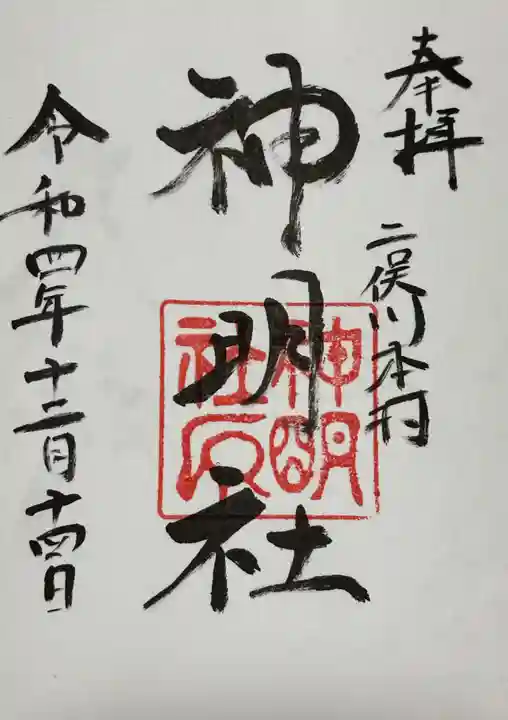 奉拝
二俣川本村
神明社
神明
社印
令和四年十二月十四日